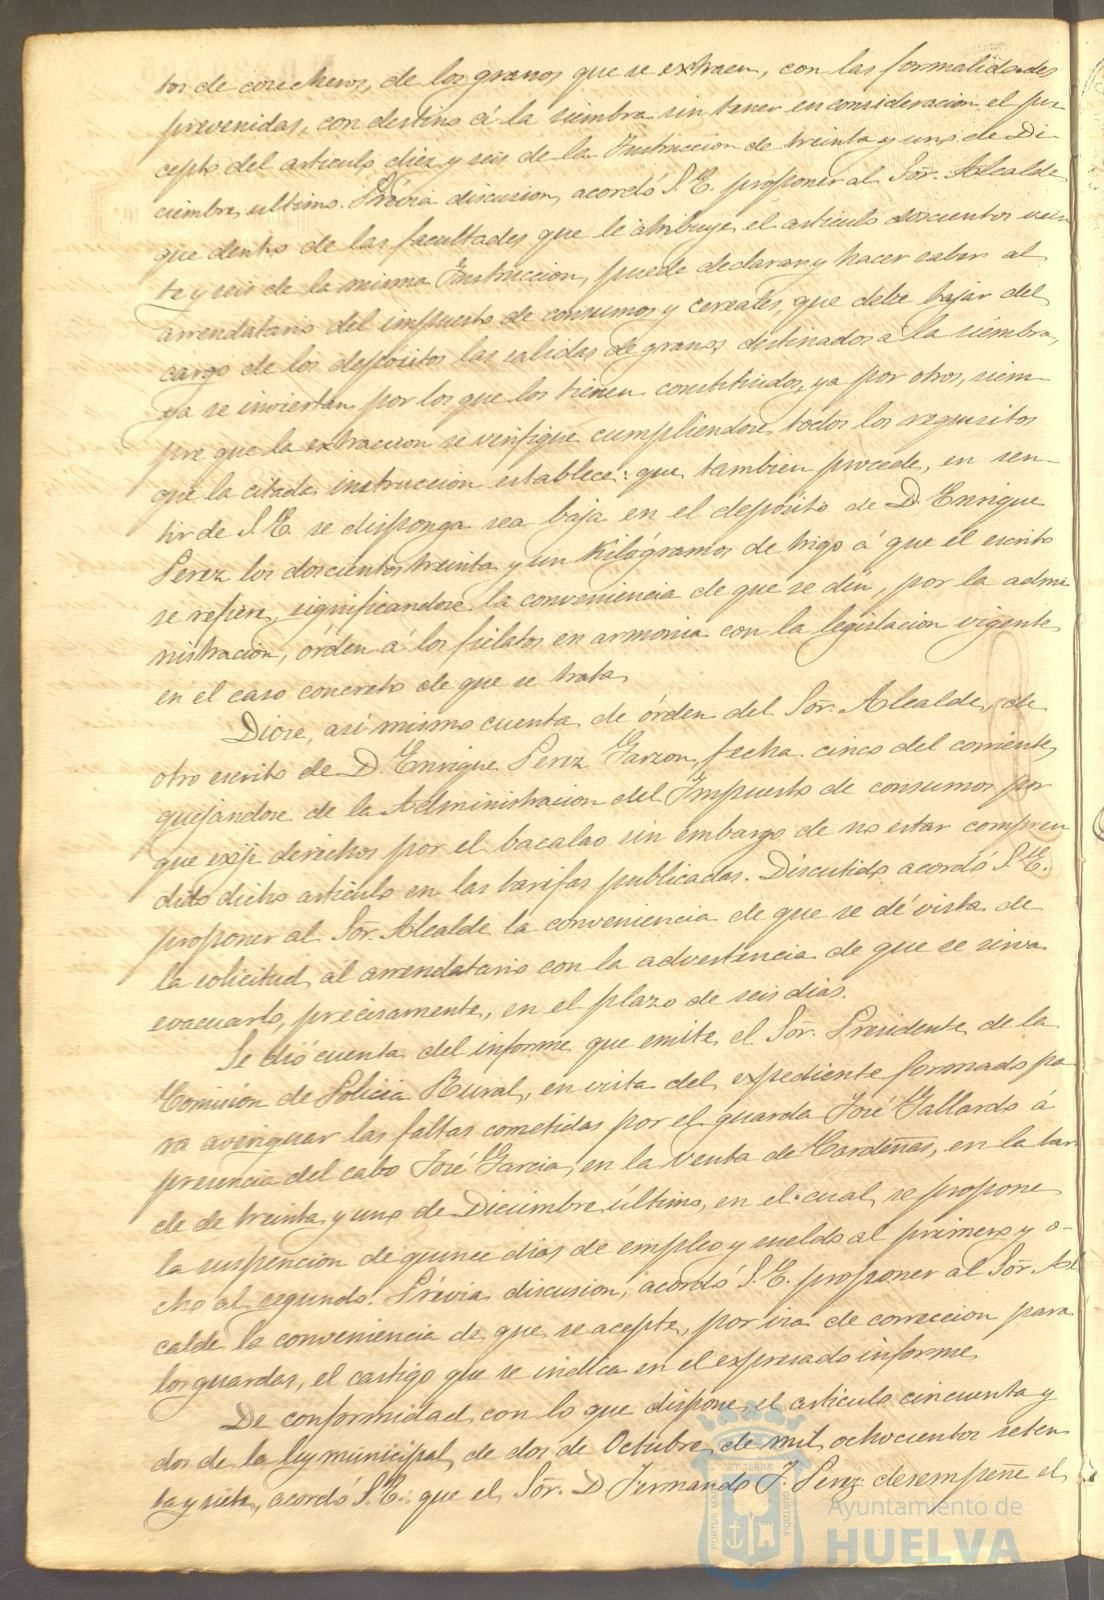 tos de cosecheros, de los granos que se extraen, con las formalidades
prevenidas, con destino á la siembra sin tener en consideracion el pre-
cepto del articulo diez y seis de la Instruccion de treinta y uno de Di
ciembre último. Prévia discusion, acordó S.E. proponer al Sor. Alcalde
que dentro de las facultades que le atribuye el articulo doscientos vein
te y seis de la misma Instruccion, puede declarar y hacer saber al
arrendatario del impuesto de consumos y cereales, que debe bajar del
cargo de los depósitos las salidas de granos destinados a la siembra,
ya se inviertan por los que los tienen constituidos, ya por otros, siem-
pre que la extraccion se verifique cumpliendose todos los requisitos
que la citada instruccion establece: que tambien procede, en sen-
tir de S.E. se disponga sea baja en el depósito de D. Enrique
Perez los doscientos treinta y un Kilógramos de trigo á que el escrito
se refiere, significandose la conveniencia de que se den, por la admi
nistración, órden á los fielatos en armonia con la legislacion vigente
en el caso concreto de que se trata.
Diose, asi mismo cuenta de órden del Sor. Alcalde, de
otro escrito de D. Enrique Perez Garzon, fecha cinco del corriente,
quejándose de la Administracion del Impuesto de consumos por
que exije derechos por el bacalao sin embargo de no estar compren
dido dicho articulo en las tarifas publicadas. Discutido, acordó S.E.
proponer al Sor. Alcalde la conveniencia de que se dé vista de
la solicitud al arrendatario con la advertencia de que se sirva
evacuarlo, precisamente, en el plazo de seis dias.
Se dió cuenta del informe que emite el Sor. Presidente de la
Comisión de Policia Rural, en vista del expediente formado pa
ra averiguar las faltas cometidas por el guarda José Gallardo á
presencia del cabo José Garcia, en la venta de Cardeñas, en la tar
de de treinta y uno de Diciembre último, en el cual se propone
la suspencion de quince dias de empleo y sueldo al primero y o-
cho al segundo. Prévia discusion, acordó S.E. proponer al Sor. Al
calde la conveniencia de que se acepte, por via de correccion para
los guardas, el castigo que se indica en el expresado informe.
De conformidad con lo que dispone el articulo cincuenta y
dos de la ley municipal de dos de Octubre de mil ochocientos seten
ta y siete, acordó S.E. que el Sor. D Fernando J. Perez desempeñe el
PORTUS MARIS ET TERRAE CUSTODIA
Ayuntamiento de
HUELVA